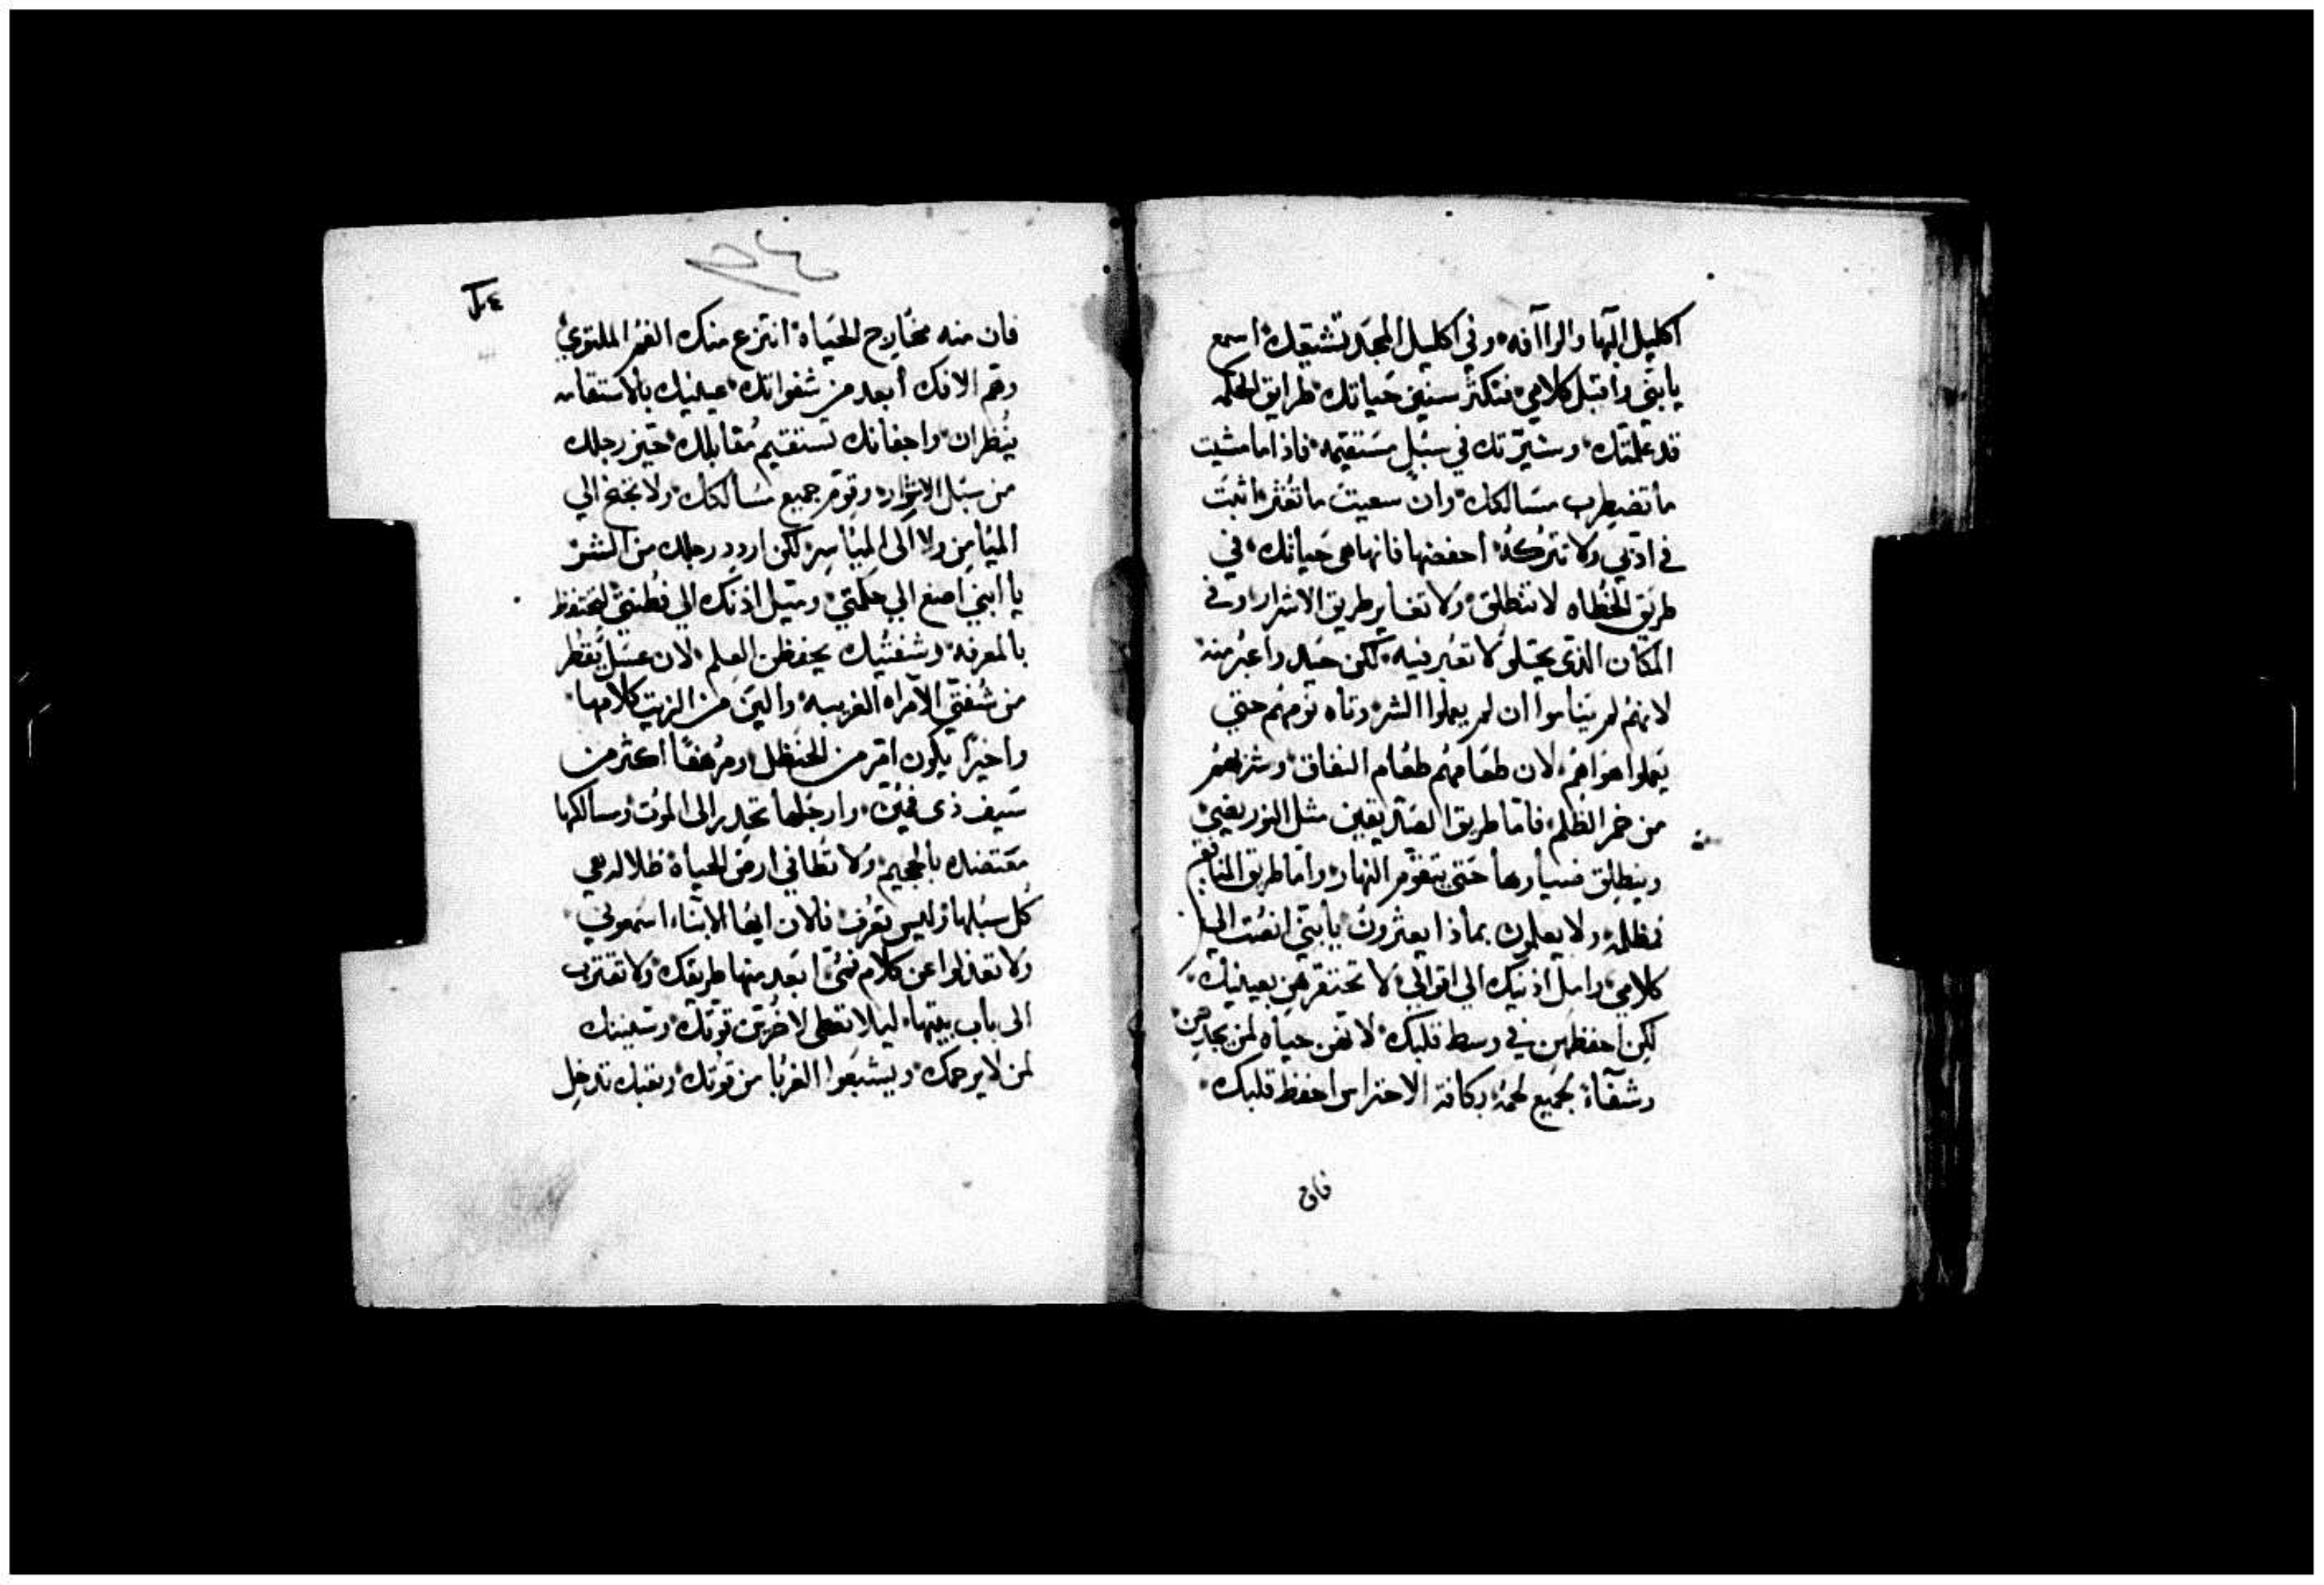 اكليل البها والراافه وفي اكليل المجد تشتبك اسمع
يابني واقبل كلامي فتكثر سنين حياتك طرايق الحكمه
قد علمتك وسيرتك في سبل مستقيمه فاذا ما مشيت
ما تضطرب مسالكك وان سعيت ما تعثر اثبت
في ادبي ولا تتركه احفضها فانها هي حياتك في
طريق الخطاه لا تنطلق ولا تغاير طريق الاشرار وفي
المكان الذي يحتلى لا تعبر فيه لكن حيد واعبر منه
لانهم لم يناموا ان لم يعملوا الشر وتاه نومهم حتي
يعملوا هواهم لان طعامهم طعام النفاق وشربهم
من خمر الظلم فاما طريق الصديقين مثل النور يضي
وينطلق مسيارها حتي يتقوم النهار واما طريق المنافق
مظلمة ولا يعلمون بماذا يعثرون يابني انصت الي
كلامي وامل اذنيك الي اقوالي لا تحتقرهن بعينيك
لكن احفظهن في وسط قلبك لانهن حياه لمن يجدهن
وشفاة لجميع لحمه بكافة الاحتراس احفظ قلبك
فان
١٠٤
فان منه مخارج الحياة انتزع منك الفم الملتوي
وفم الافك أبعد من شفواتك عينيك بالاستقامه
ينظران واجفانك تستقيم مقابلك حيز رجلك
من سبل الاشرار وتقوم جميع مسالكك ولا تجنح الي
الميامن ولا الى المياسر لكن اردد رجلك من الشر
يا ابني اصغ الي حكمتي وميل اذنك الي فطنتي لتحتفظ
بالمعرفه وشفتيك يحفظن العلم لان عسل يقطر
من شفتي الامراه الغريبه والين من الزيت كلامها
واخيرا يكون امر من الحنظل ومرهفا اكثر من
سيف ذى فمين وارجلها تحدر الى الموت ومسالكها
مقتضده بالجحيم ولا تطا في ارض الحياة ظلاله هي
كل سبلها وليس تعرف فالان ايها الابناء اسمعوني
ولا تعذلوا عن كلام فمي ابعد منها طريقك ولا تقترب
الى باب بيتها ليلا تعطى لاخرين قوتك وسنينك
لمن لا يرحمك ويشبعوا الغربا من قوتك وتعبك تدخل